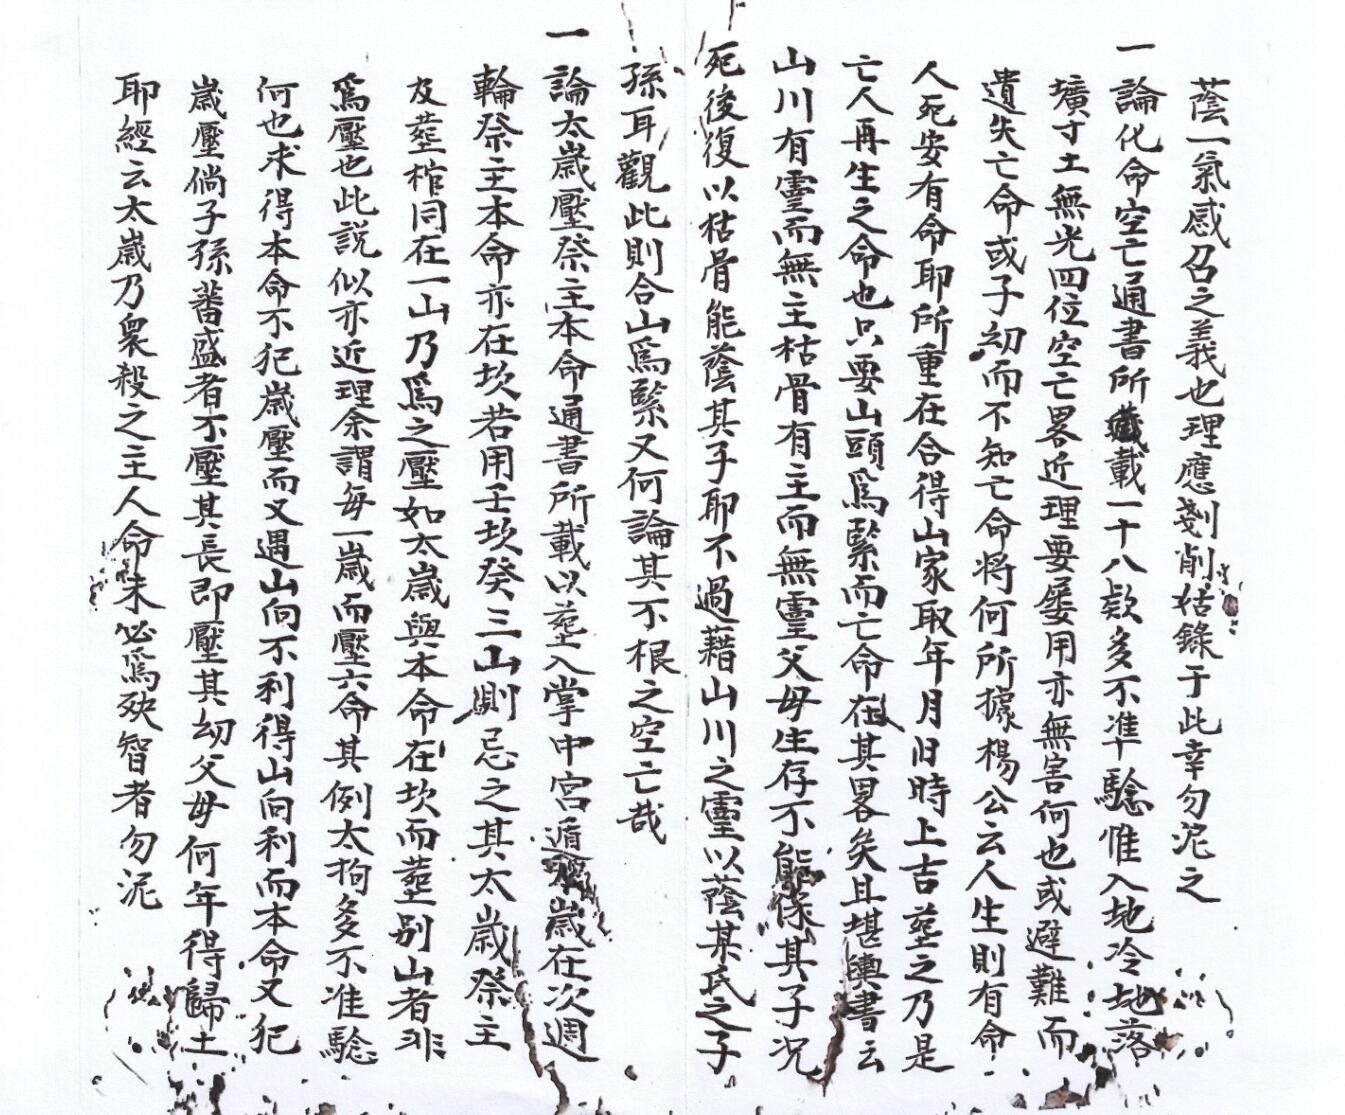 蔭一氣感召之義也理應剗削姑錄于此幸勿泥之
一論化命空亡通書所載一十八欵多不準驗惟入地冷地落
壙寸土無光四位空亡畧近理要屡用亦無害何也或避難而
遺失亡命或子幼而不知亡命將何所據楊公云人生則有命
人死安有命耶所重在合得山家取年月日時上吉塟之乃是
亡人再生之命也只要山頭爲緊而亡命在其畧矣且堪輿書云
山川有靈而無主枯骨有主而無靈父母生存不能保其子况
死後復以枯骨能蔭其子耶不過藉山川之靈以蔭某氏之子
孫耳觀此則合山爲緊又何論其不根之空亡哉
一論太歲壓祭主本命通書所載以塟入掌中宮遁歲在次週
輪祭主本命亦在坎若用壬坎癸三山則忌之其太歲祭主
及塟棺同在一山乃爲之壓如太歲與本命在坎而塟别山者非
爲壓也此説似亦近理余謂每一歲而壓六命其例太拘多不准驗
何也求得本命不犯歲壓而又遇山向不利得山向利而本命又犯
歲壓倘子孫蕃盛者不壓其長即壓其幼父母何年得歸土
耶經云太歲乃衆殺之主人命未必爲殃智者勿泥